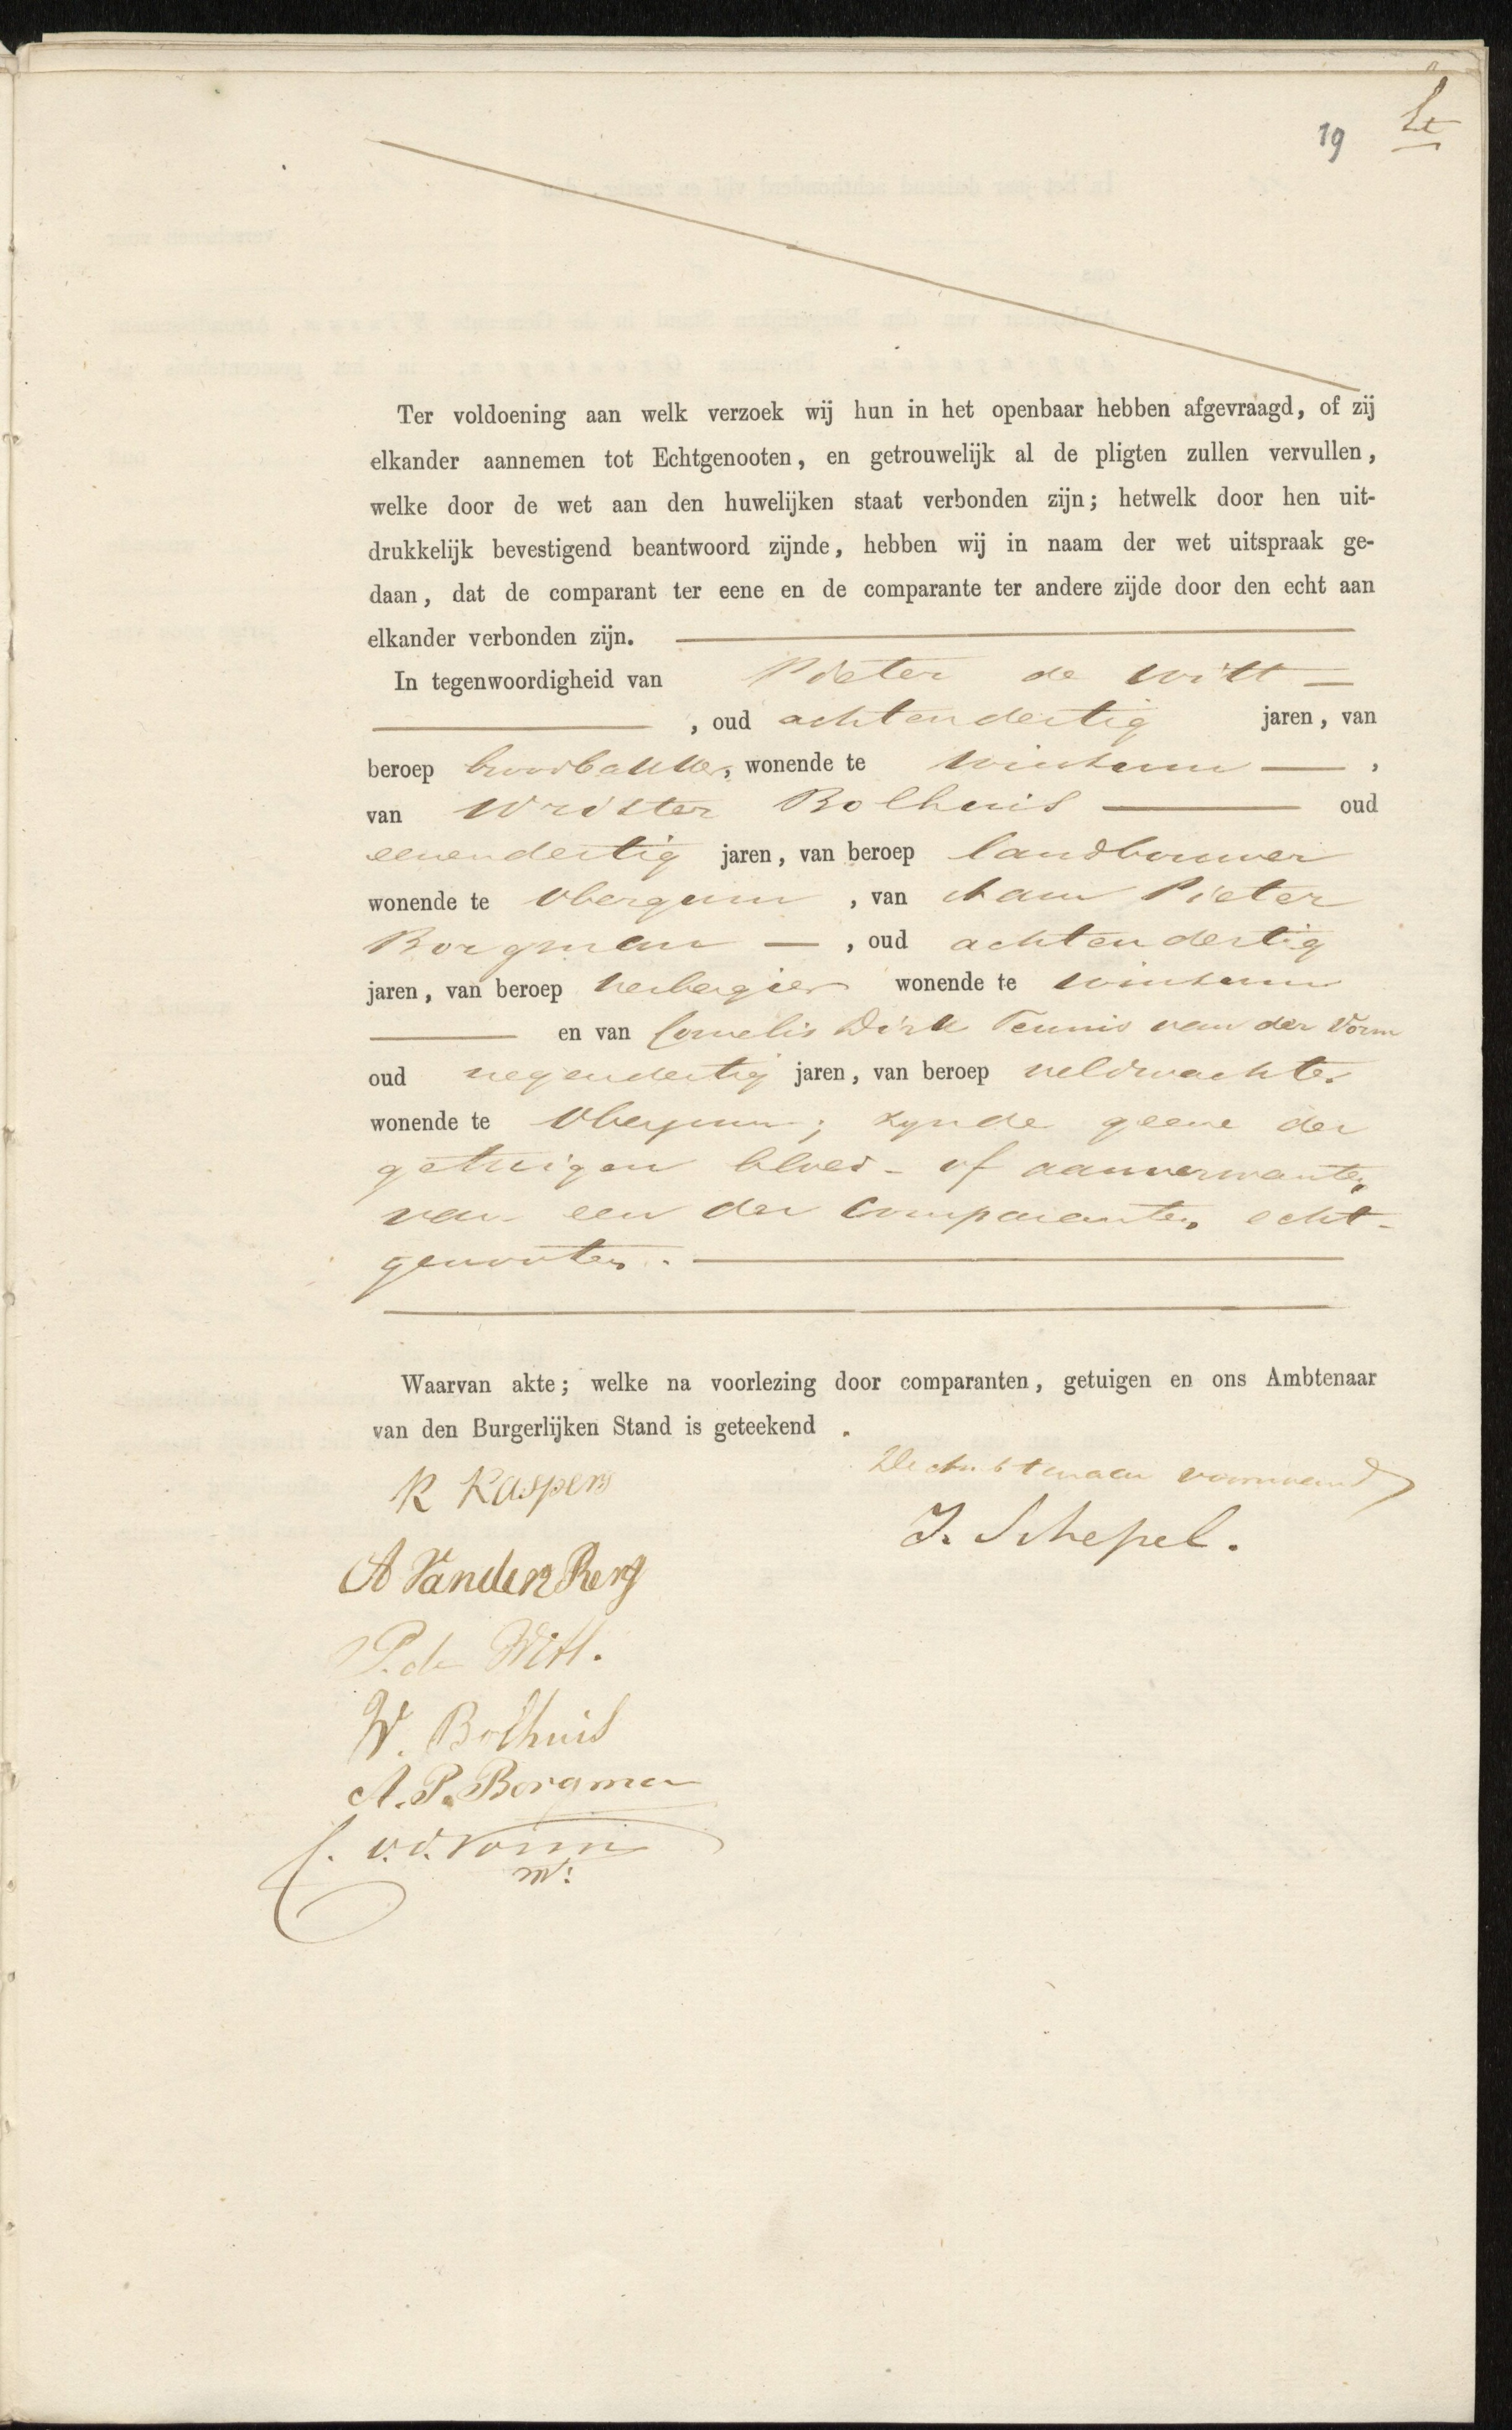 19
Ter voldoening aan welk verzoek wij hun in het openbaar hebben afgevraagd, of zij
elkander aannemen tot Echtgenooten, en getrouwelijk al de pligten zullen vervullen,
welke door de wet aan den huwelijken staat verbonden zijn; hetwelk door hen uit-
drukkelijk bevestigend beantwoord zijnde, hebben wij in naam der wet uitspraak ge-
daan, dat de comparant ter eene en de comparante ter andere zijde door den echt aan
elkander verbonden zijn.
In tegenwoordigheid van Pieter de Witt
, oud achtendertig jaren, van
beroep broodbakker, wonende te Winsum ,
van Wridzer Bolhuis oud
eenendertig jaren, van beroep landbouwer
wonende te Obergum , van Pieter
Borgman , oud achtendertig
jaren, van beroep herbergier wonende te Winsum
en van Cornelis Dirk Teunis van der Vorm
oud negendertig jaren, van beroep veldwachter
wonende te Obergum; zynde geene der
getuigen bloed- of aanverwanten
van een der Comparanten echt-
genooten.
Waarvan akte; welke na voorlezing door comparanten, getuigen en ons Ambtenaar
van den Burgerlijken Stand is geteekend .
De Ambtenaar voornoemd
R Kaspers
J. Schepel.
A Vanden Berg
P. de Witt.
W. Bolhuis
A. P. Borgman
C. v.d. Vorm